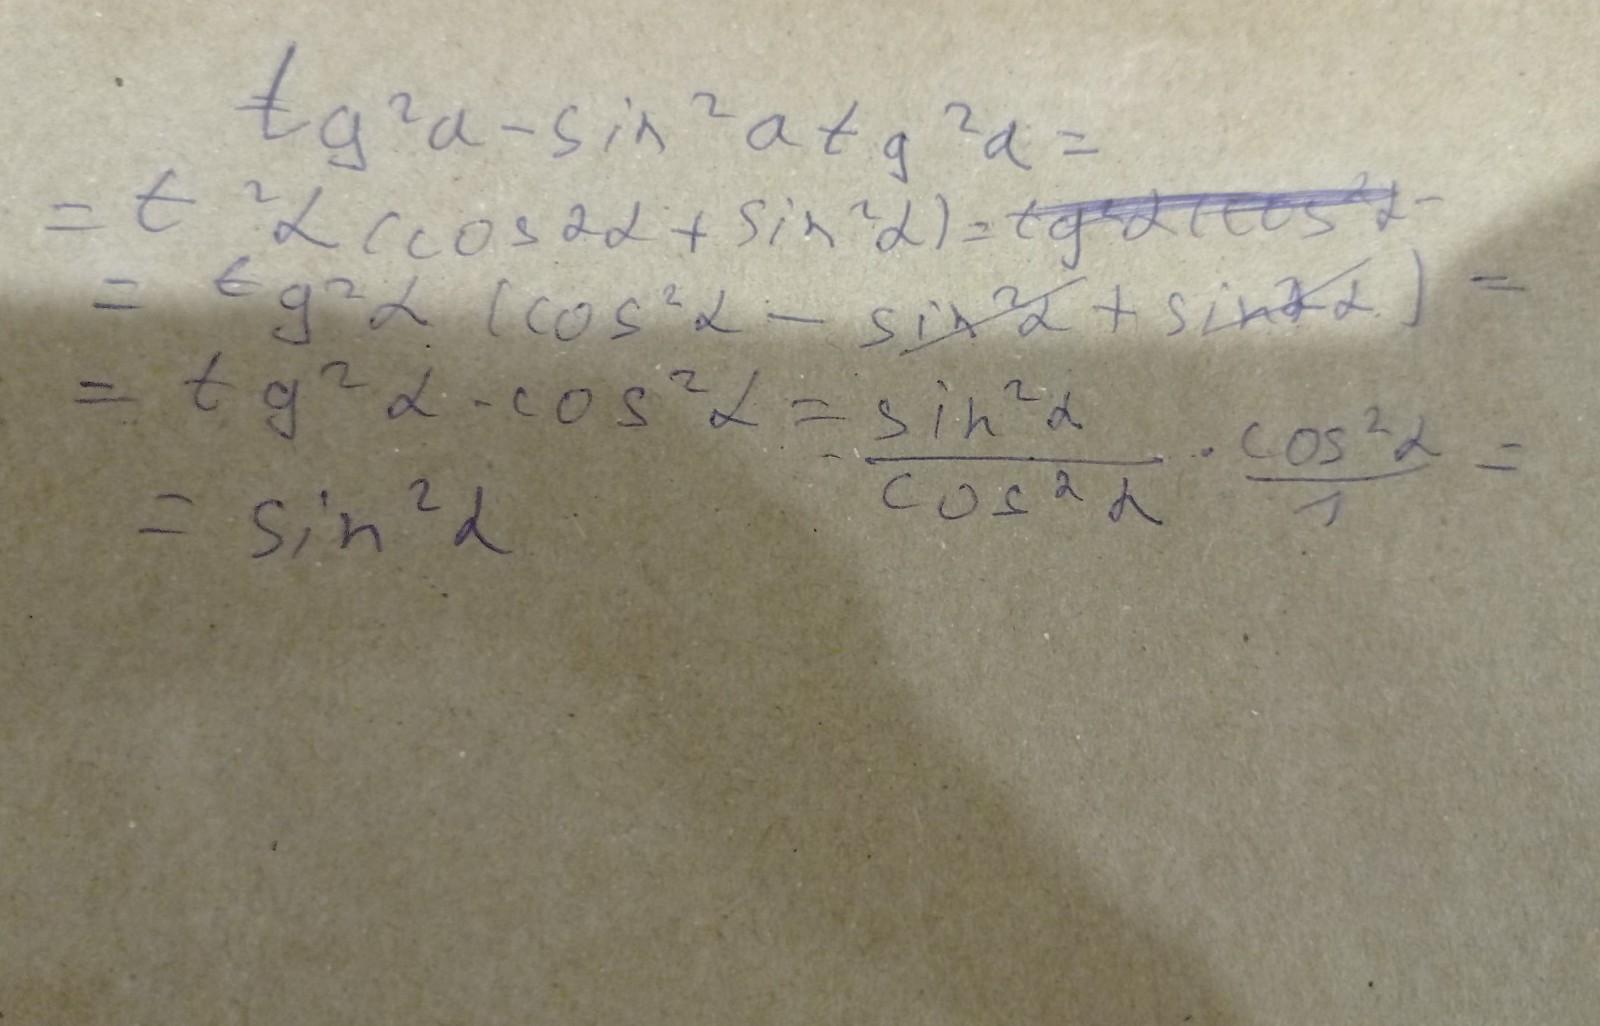 tg²α-sin²αtg²α=
=t ²α(cos2α+sin²α)=
= tg²α (cos²α - sin²α + sin²α) =
= tg²α·cos²α = sin²α/cos²α · cos²α/1 =
= sin²α